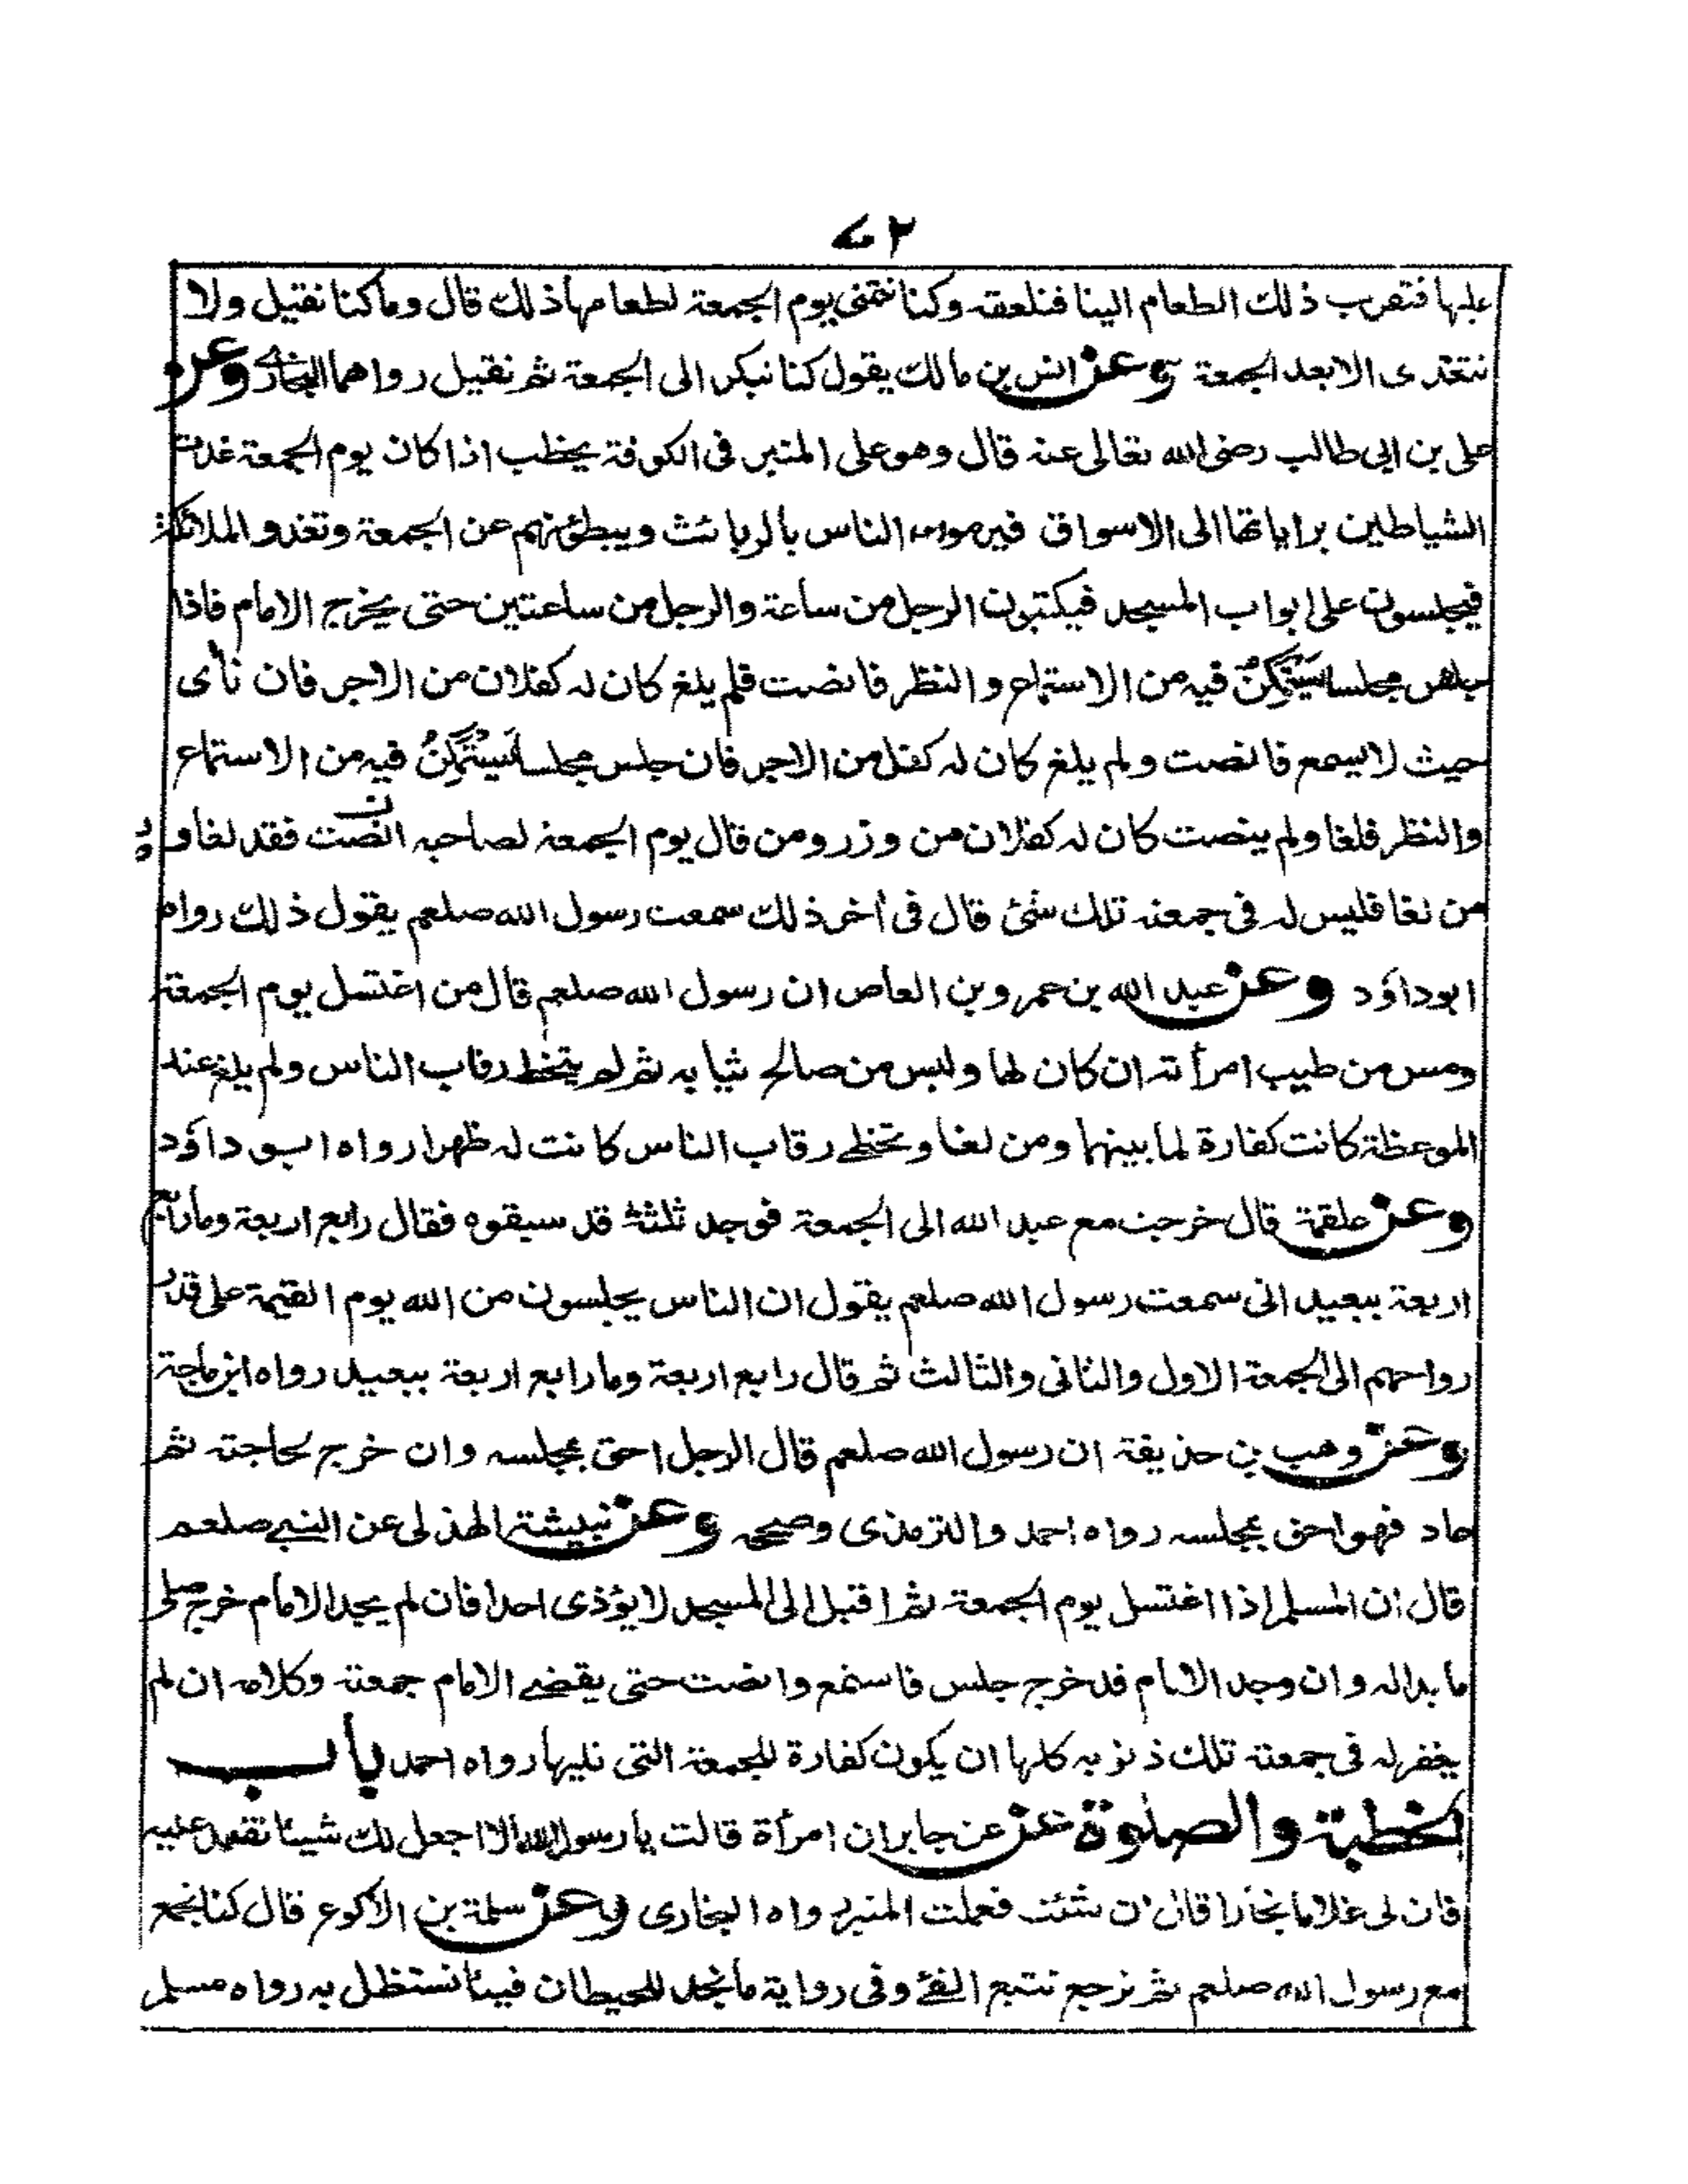 ٧٢
عليها فتقرب ذلك الطعام الينا فنلعقه وكنا نتمنى يوم الجمعة لطعامها ذلك قال وما كنا نقيل ولا
نتغدى الا بعد الجمعة وعن انس بن مالك يقول كنا نبكر الى الجمعة ثم نقيل رواهما البخاري وعن
على بن ابى طالب رضى الله تعالى عنه قال وهو على المنبر فى الكوفة يخطب اذا كان يوم الجمعة غدت
الشياطين براياتها الى الاسواق فيرمون الناس بالربائث ويبطئونهم عن الجمعة وتغدو الملائكة
فيجلسون على ابواب المسجد فيكتبون الرجل من ساعة والرجل من ساعتين حتى يخرج الامام فاذا
جلس مجلسا يَستَمكِنُ فيه من الاستماع والنظر فانصت فلم يلغ كان له كفلان من الاجر فان نأى
حيث لا يسمع فانصت ولم يلغ كان له كفل من الاجر فان جلس مجلسا يَستَمكِنُ فيه من الاستماع
والنظر فلغا ولم ينصت كان له كفلان من وزر ومن قال يوم الجمعة لصاحبه انصت فقد لغا و
من لغا فليس له فى جمعته تلك شئ قال فى أخر ذلك سمعت رسول الله صلعم يقول ذلك رواه
ابو داؤد وعن عبد الله بن عمرو بن العاص ان رسول الله صلعم قال من اغتسل يوم الجمعة
ومس من طيب امرأته ان كان لها ولبس من صالح ثيابه ثم لم يتخط رقاب الناس ولم يلغ عند
الموعظة كانت كفارة لما بينهما ومن لغا وتخطے رقاب الناس كانت له ظهرا رواه ابو داؤد
وعن علقمة قال خرجت مع عبد الله الى الجمعة فوجد ثلثة قد سبقوه فقال رابع اربعة وما رابع
اربعة ببعيد انى سمعت رسول الله صلعم يقول ان الناس يجلسون من الله يوم القيمة على قدر
رواحهم الى الجمعة الاول والثانى والثالث ثم قال رابع اربعة وما رابع اربعة ببعيد رواه ابن ماجة
وعن وهب بن حذيفة ان رسول الله صلعم قال الرجل احق بمجلسه وان خرج لحاجته ثم
عاد فهو احق بمجلسه رواه احمد والترمذى وصححه وعن نبيشة الهذلى عن النبے صلعم
قال ان المسلم اذا اغتسل يوم الجمعة ثم اقبل الى المسجد لا يؤذى احدا فان لم يجد الامام خرج صلى
ما بدا له وان وجد الامام قد خرج جلس فاستمع وانصت حتى يقضے الامام جمعته وكلامه ان لم
يغفر له فى جمعته تلك ذنوبه كلها ان يكون كفارة للجمعة التى تليها رواه احمد باب
الخطبة والصلوة عن عن جابر ان امرأة قالت يا رسول الله الا اجعل لك شيئا تقعد عليه
فان لى غلاما نجارا قال ان شئت فعملت المنبر رواه البخارى وعن سلمة بن الاكوع قال كنا نجمع
مع رسول الله صلعم ثم نرجع نتتبع الفئ وفى رواية ما نجد للحيطان فيئا نستظل به رواه مسلم